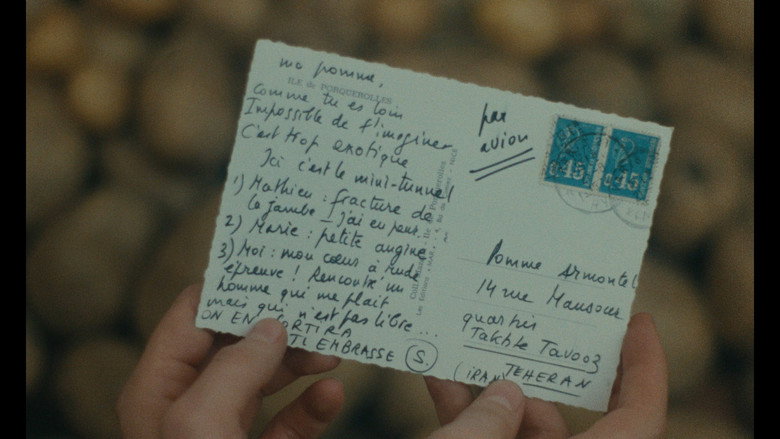 ma pomme,
ILE de PORQUEROLLES
Comme tu es loin
Impossible de t'imaginer
C'est trop exotique
Ici c'est le mini-tunnel
1) Mathieu : fracture de
la jambe - J'ai eu peur.
2) Marie : petite angine
3) Moi : mon cœur à rude
épreuve ! Rencontré un
homme qui me plaît
mais qui n'est pas libre ...
ON EN SORTIRA
T'EMBRASSE S.
par
avion
0.15 0.15
Pomme
14 rue Mansour
quartier
Takhte Tavooz
TEHERAN
(IRAN)